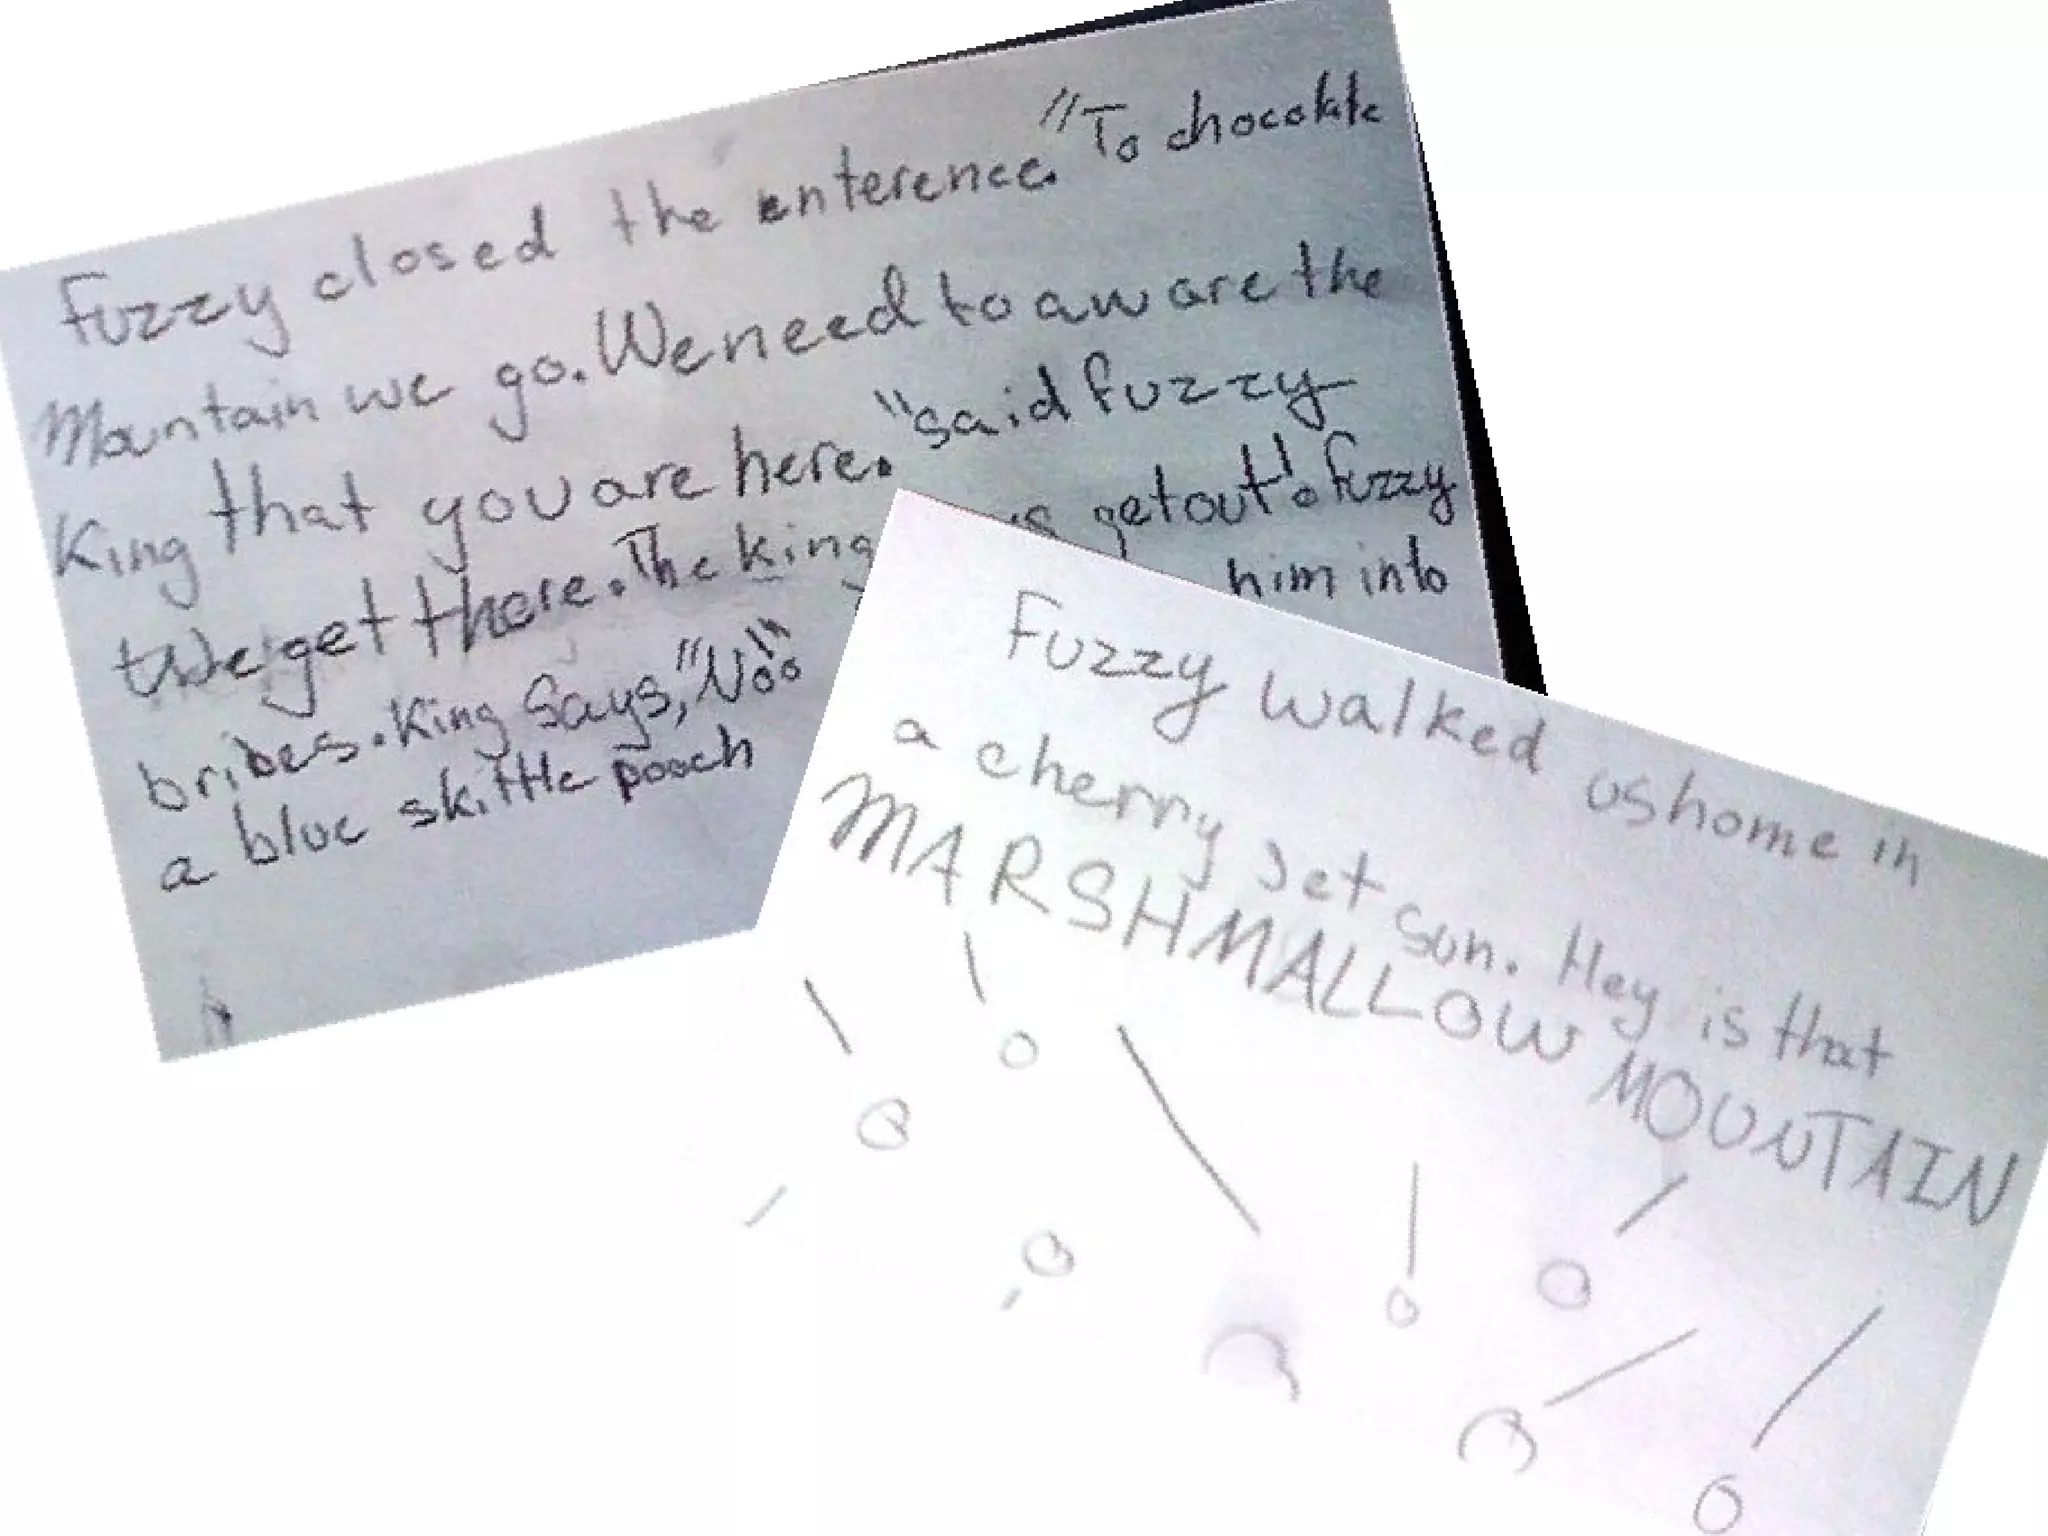 Fuzzy closed the enterence. "To chocolate
Mountain we go. We need to aware the
King that you are here." said fuzzy
We get there. The king getout'! fuzzy
him into
bribes. King Says, "No".
a blue skittle pooch
Fuzzy walked us home in
a cherry Jet sun. Hey is that
MARSHMALLOW MOUNTAIN